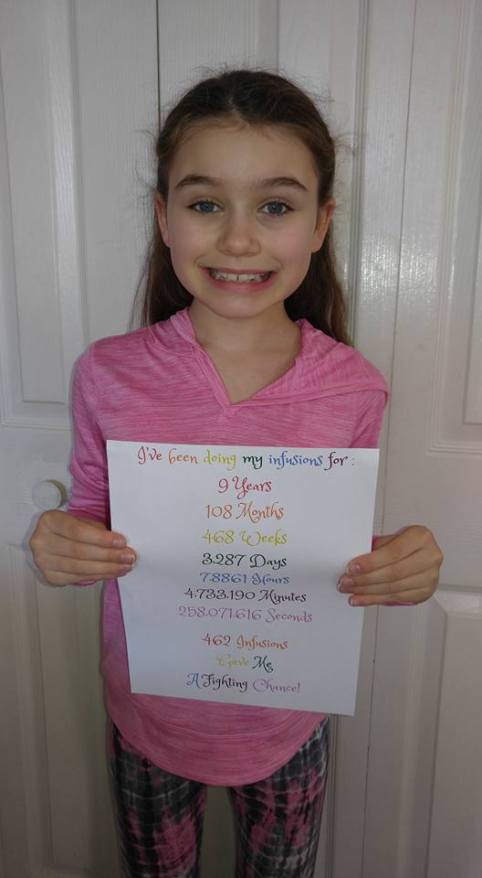 I've been doing my infusions for:
9 Years
108 Months
468 Weeks
3,287 Days
78861 Hours
4,733,190 Minutes
258,071,616 Seconds
462 Infusions
Gave Me
A Fighting Chance!